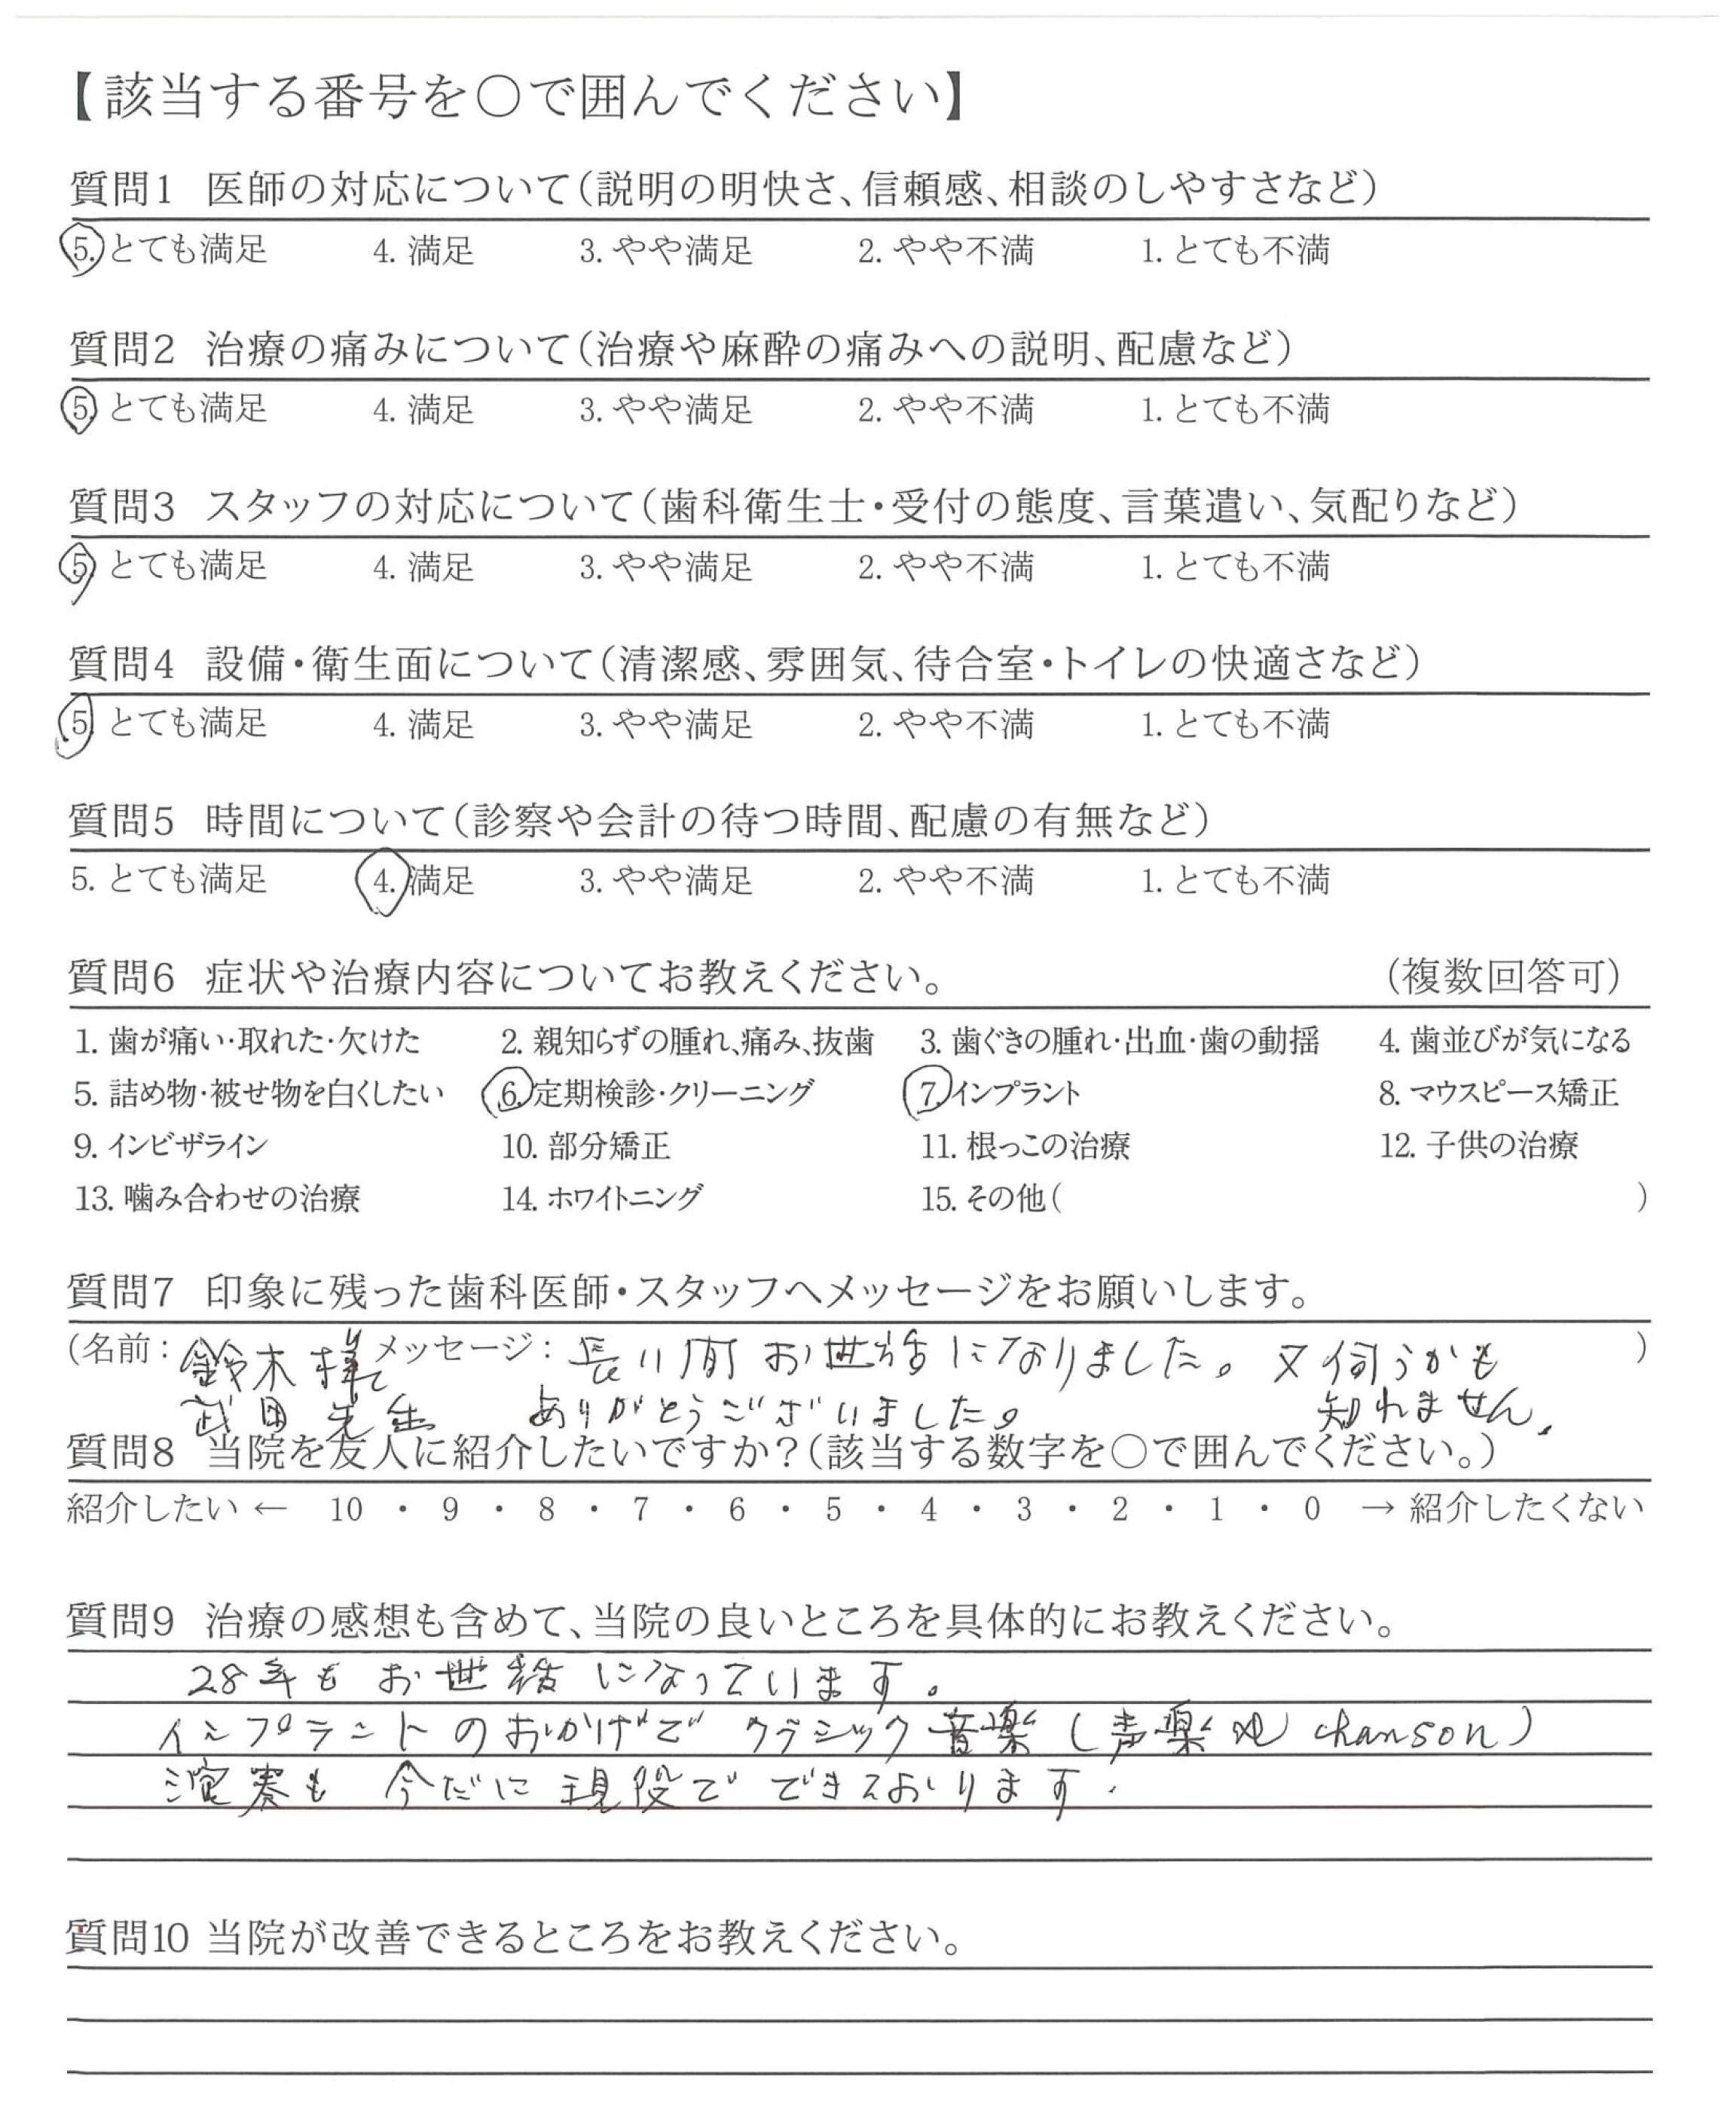 【該当する番号を○で囲んでください】
質問1 医師の対応について(説明の明快さ、信頼感、相談のしやすさなど)
5. とても満足 4. 満足 3. やや満足 2. やや不満 1. とても不満
質問2 治療の痛みについて(治療や麻酔の痛みへの説明、配慮など)
5. とても満足 4. 満足 3. やや満足 2. やや不満 1. とても不満
質問3 スタッフの対応について(歯科衛生士・受付の態度、言葉遣い、気配りなど)
5. とても満足 4. 満足 3. やや満足 2. やや不満 1. とても不満
質問4 設備・衛生面について(清潔感、雰囲気、待合室・トイレの快適さなど)
5. とても満足 4. 満足 3. やや満足 2. やや不満 1. とても不満
質問5 時間について(診察や会計の待つ時間、配慮の有無など)
5. とても満足 4. 満足 3. やや満足 2. やや不満 1. とても不満
質問6 症状や治療内容についてお教えください。 (複数回答可)
1. 歯が痛い・取れた・欠けた 2. 親知らずの腫れ、痛み、抜歯 3. 歯ぐきの腫れ・出血・歯の動揺 4. 歯並びが気になる
5. 詰め物・被せ物を白くしたい 6. 定期検診・クリーニング 7. インプラント 8. マウスピース矯正
9. インビザライン 10. 部分矯正 11. 根っこの治療 12. 子供の治療
13. 噛み合わせの治療 14. ホワイトニング 15. その他( )
質問7 印象に残った歯科医師・スタッフへメッセージをお願いします。
(名前: 鈴木様 メッセージ: 長い間お世話になりました。又伺うかも )
武田先生 ありがとうございました。 知れません.
質問8 当院を友人に紹介したいですか?(該当する数字を○で囲んでください。)
紹介したい ← 10 ・ 9 ・ 8 ・ 7 ・ 6 ・ 5 ・ 4 ・ 3 ・ 2 ・ 1 ・ 0 → 紹介したくない
質問9 治療の感想も含めて、当院の良いところを具体的にお教えください。
28年もお世話になっています。
インプラントのおかげでクラシック音楽(声楽 chanson)
演奏も今だに現役でできております.
質問10 当院が改善できるところをお教えください。